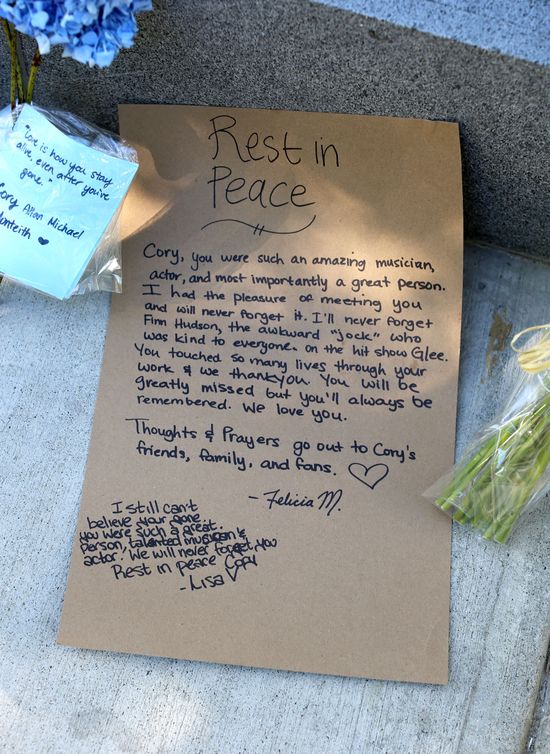 Rest in
Peace
Cory, you were such an amazing musician,
actor, and most importantly a great person.
I had the pleasure of meeting you
and will never forget it. I'll never forget
Finn Hudson, the awkward "jock" who
was kind to everyone. on the hit show Glee.
You touched so many lives through your
work & we thankyou. You will be
greatly missed but you'll always be
remembered. We love you.
Thoughts & Prayers go out to Cory's
friends, family, and fans.
- Felicia M.
I still can't
believe your gone
you were such a great.
person, talented musician &
actor. We will never forget you
Rest in peace Cory
- Lisa
"Love is how you stay
alive, even after you're
gone."
Cory Allan Michael
Monteith